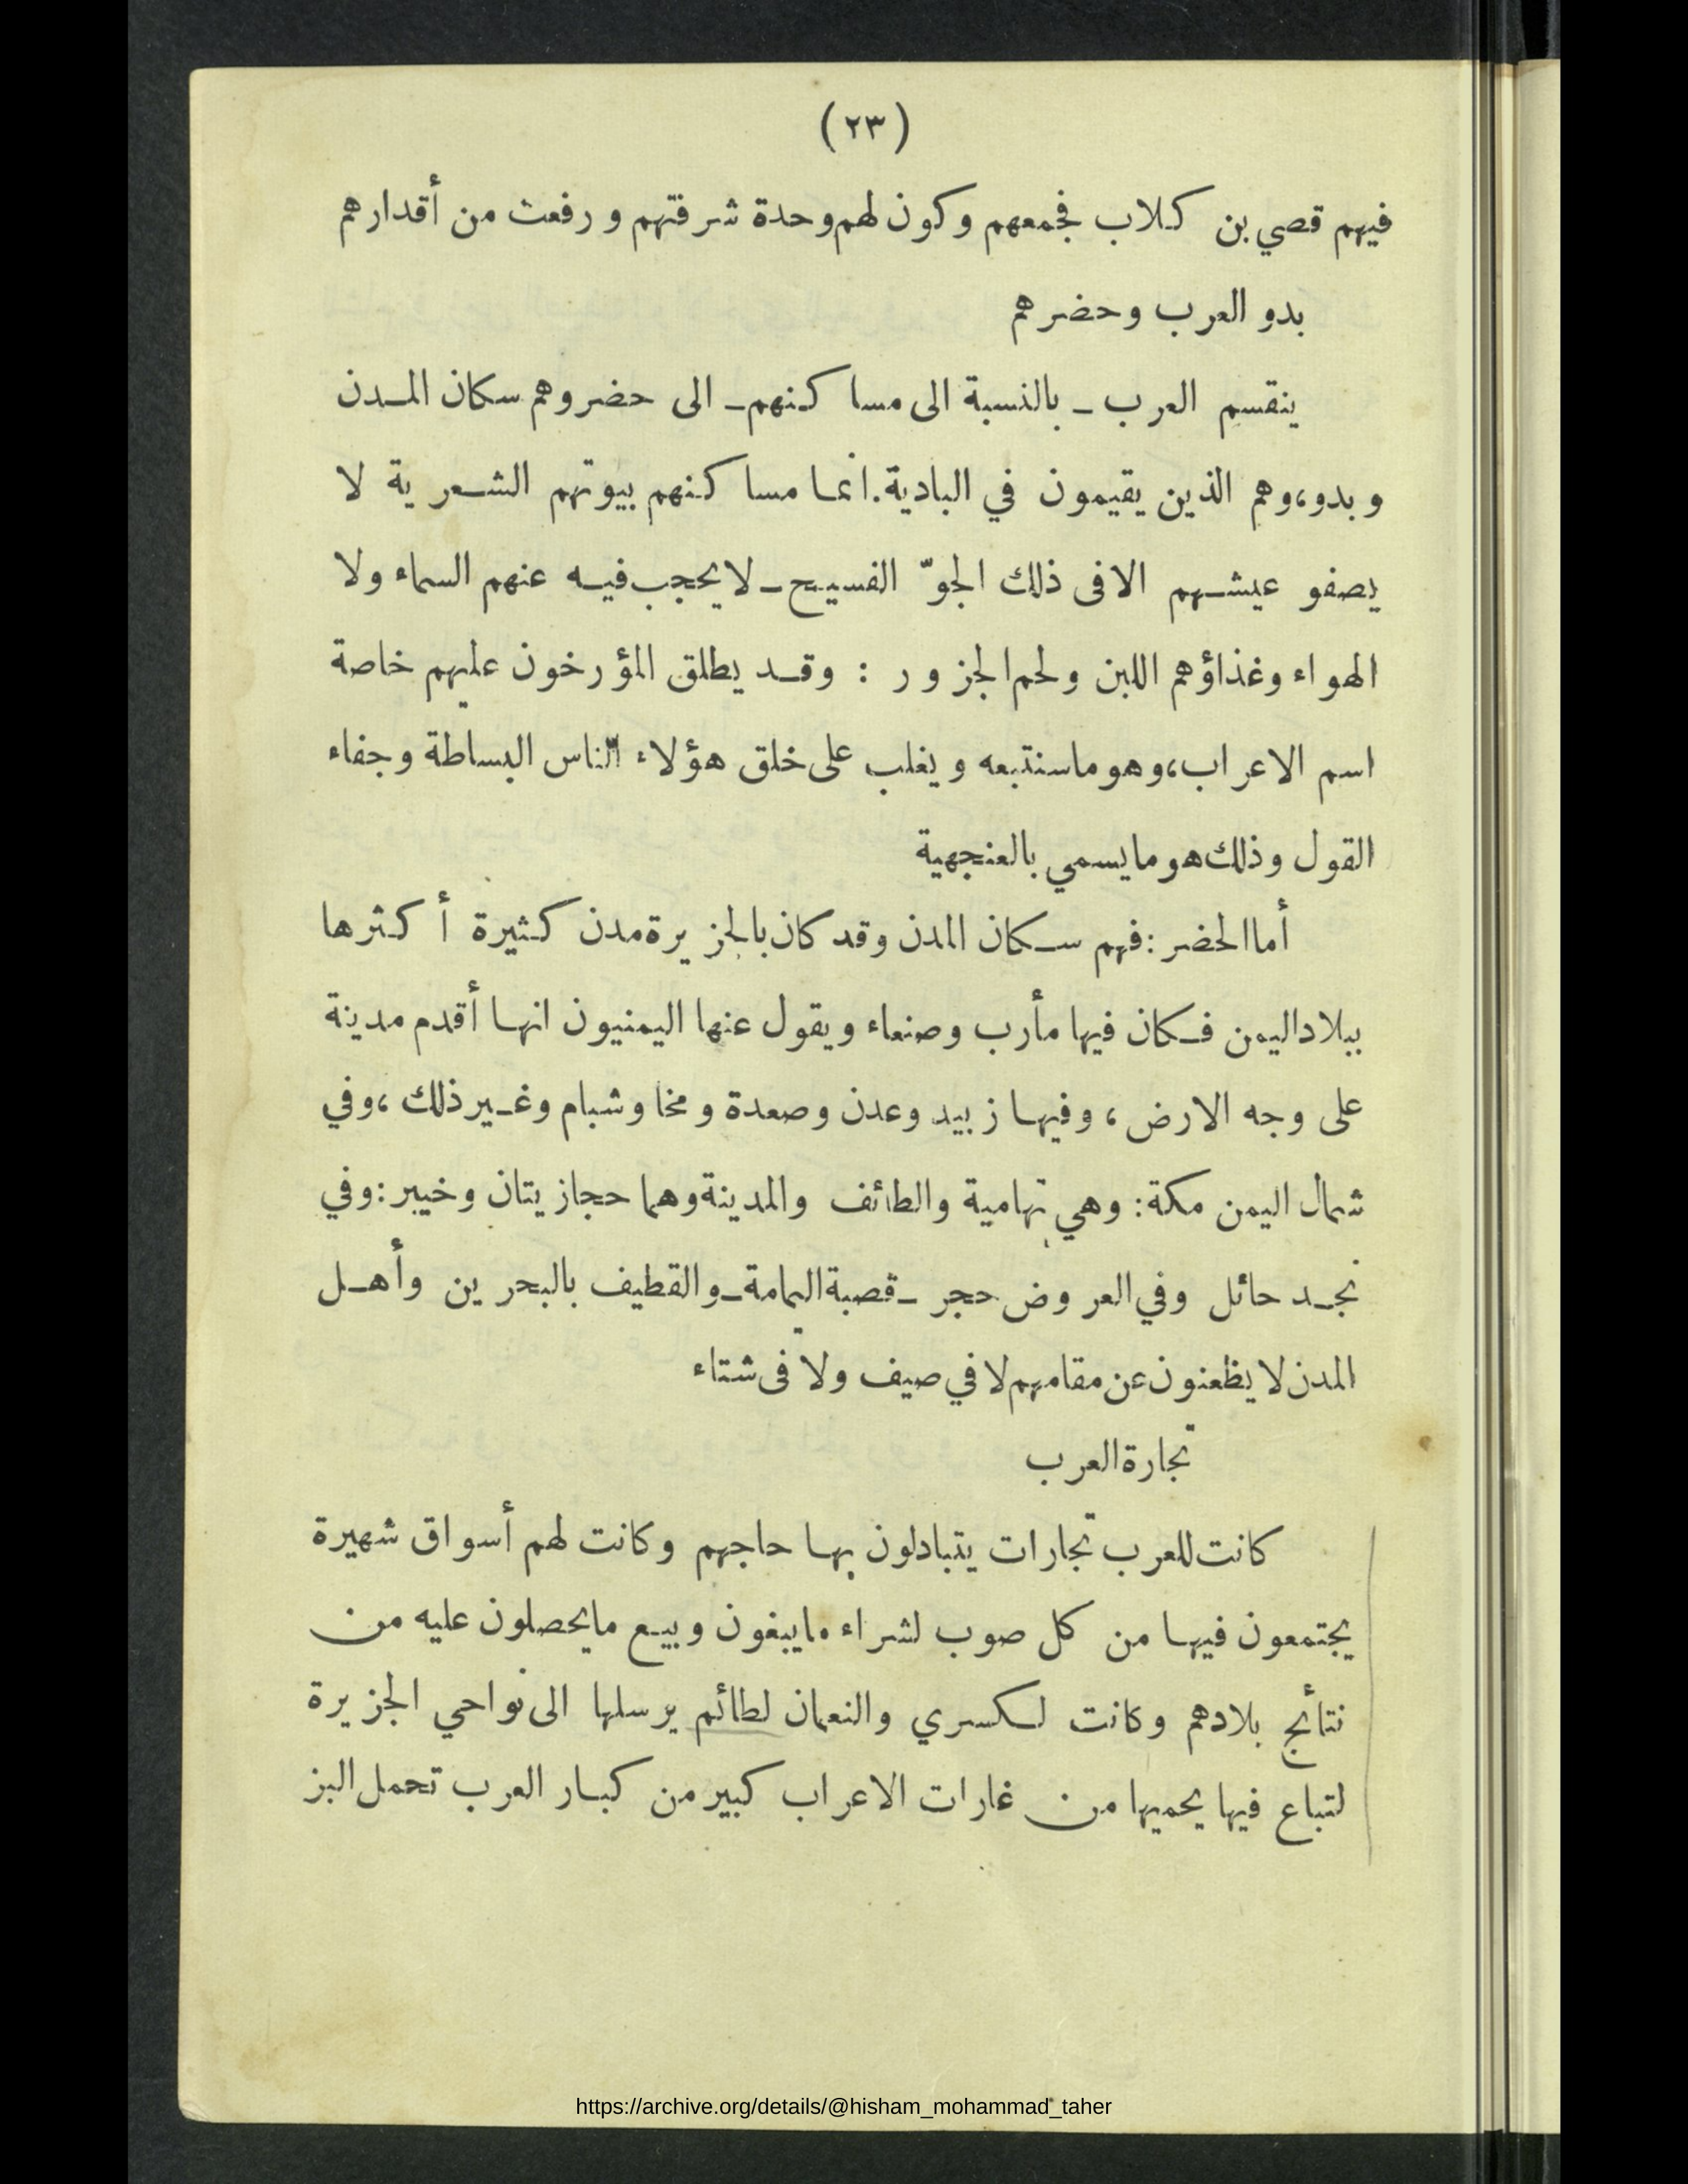 (٢٣)
فيهم قصي بن كلاب فجمعهم وكون لهم وحدة شرفتهم ورفعت من أقدارهم
بدو العرب وحضرهم
ينقسم العرب ـ بالنسبة الى مساكنهم ـ الى حضر وهم سكان المدن
وبدو، وهم الذين يقيمون في البادية. انما مساكنهم بيوتهم الشعرية لا
يصفو عيشهم الا فى ذلك الجوّ الفسيح ـ لا يحجب فيه عنهم السماء ولا
الهواء وغذاؤهم اللبن ولحم الجزور : وقد يطلق المؤرخون عليهم خاصة
اسم الاعراب، وهو ما سنتبعه ويغلب على خلق هؤلاء الناس البساطة وجفاء
القول وذلك هو ما يسمي بالعنجهية
أما الحضر : فهم سكان المدن وقد كان بالجزيرة مدن كثيرة أكثرها
ببلاد اليمن فكان فيها مأرب وصنعاء ويقول عنها اليمنيون انها أقدم مدينة
على وجه الارض، وفيها زبيد وعدن وصعدة ومخا وشبام وغير ذلك، وفي
شمال اليمن مكة : وهي تهامية والطائف والمدينة وهما حجازيتان وخيبر : وفي
نجد حائل وفي العروض حجر ـ قصبة اليمامة ـ والقطيف بالبحرين وأهل
المدن لا يظعنون عن مقامهم لا في صيف ولا فى شتاء
تجارة العرب
كانت للعرب تجارات يتبادلون بها حاجهم وكانت لهم أسواق شهيرة
يجتمعون فيها من كل صوب لشراء ما يبغون وبيع ما يحصلون عليه من
نتائج بلادهم وكانت لكسري والنعمان لطائم يرسلها الى نواحي الجزيرة
لتباع فيها يحميها من غارات الاعراب كبير من كبار العرب تحمل البز
https://archive.org/details/@hisham_mohammad_taher